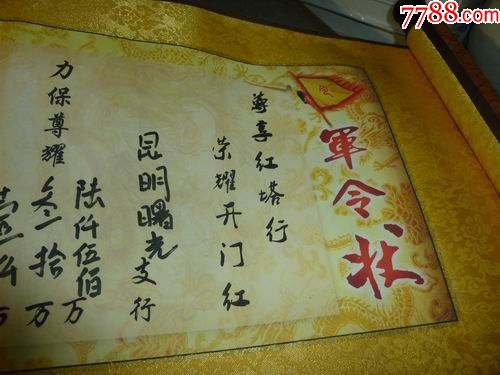 7788.com
令
軍令状
尊享红塔行
荣耀开门红
昆明曙光支行
陆仟伍佰万
叁拾万
力保尊耀
万